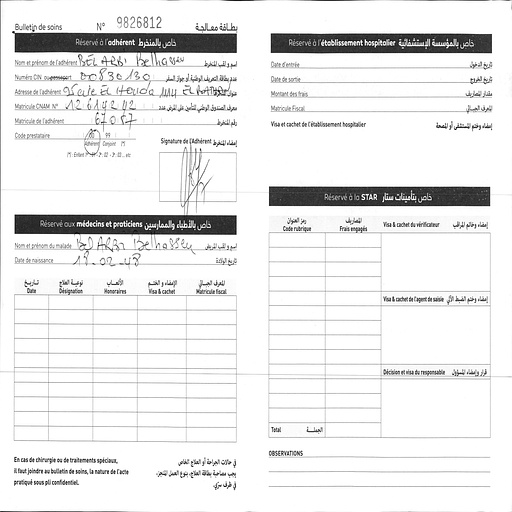 Bulletin de soins N° 9826812 بطاقة معالجة
Réservé à l'adhérent خاص بالمنخرط
Nom et prénom de l'adhérent BEL ARBI Belhassen اسم و لقب المنخرط
Numéro CIN ou passeport 00830130 عدد بطاقة التعريف الوطنية أو جواز السفر
Adresse de l'adhérent
Matricule CNAM N° 12614242
Matricule de l'adhérent 67087 رقم المنخرط
Code prestataire 00 99
Adhérent Conjoint (*)
Signature de l'Adhérent إمضاء المنخرط
Réservé aux médecins et praticiens خاص بالأطباء والممارسين
Nom et prénom du malade BEL ARBI Belhassen اسم و لقب المريض
Date de naissance 18-02-48 تاريخ الولادة
تاريخ نوعية العلاج الأتعاب الإمضاء و الختم المعرف الجبائي
Date Désignation Honoraires Visa & cachet Matricule fiscal
En cas de chirurgie ou de traitements spéciaux,
il faut joindre au bulletin de soins, la nature de l'acte
pratiqué sous pli confidentiel.
في حالات الجراحة أو العلاج الخاص
يجب مصاحبة بطاقة العلاج، بنوع العمل المنجز،
في ظرف سري.
Réservé à l'établissement hospitalier خاص بالمؤسسة الإستشفائية
Date d'entrée تاريخ الدخول
Date de sortie تاريخ الخروج
Montant des frais مقدار المصاريف
Matricule Fiscal المعرف الجبائي
Visa et cachet de l'établissement hospitalier إمضاء وختم المستشفى أو المصحة
Réservé à la STAR خاص بتأمينات ستار
رمز العنوان المصاريف
Code rubrique Frais engagés
Visa & cachet du vérificateur إمضاء وخاتم المراقب
Visa & cachet de l'agent de saisie إمضاء وختم الضبط الآلي
Décision et visa du responsable قرار وإمضاء المسؤول
Total الجملة
OBSERVATIONS